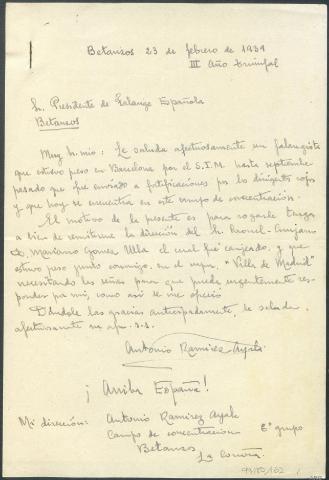 Betanzos 23 de febrero de 1939
III Año triunfal
Sr. Presidente de Falange Española
Betanzos
Muy Sr. mio: Le saluda afectuosamente un falangista
que estuvo preso en Barcelona por el S.I.M. hasta septiembre
pasado que fue enviado a fortificaciones por los dirigentes rojos
y que hoy se encuentra en este campo de concentración.
El motivo de la presente es para rogarle tenga
a bien de remitirme la dirección del Sr.
D. Mariano Gomez Ulla el cual fue canjeado, y que
estuvo preso junto conmigo, en el vapor "Villa de Madrid"
necesitando las señas para que pueda urgentemente res-
ponder por mi, como así se me ofreció
Dándole las gracias anticipadamente, le saluda
afectuosamente su s.s.
Antonio Ramirez Ayala
¡Arriba España!
Mi dirección: Antonio Ramirez Ayala
Campo de concentracion 6º grupo
Betanzos
La Coruña